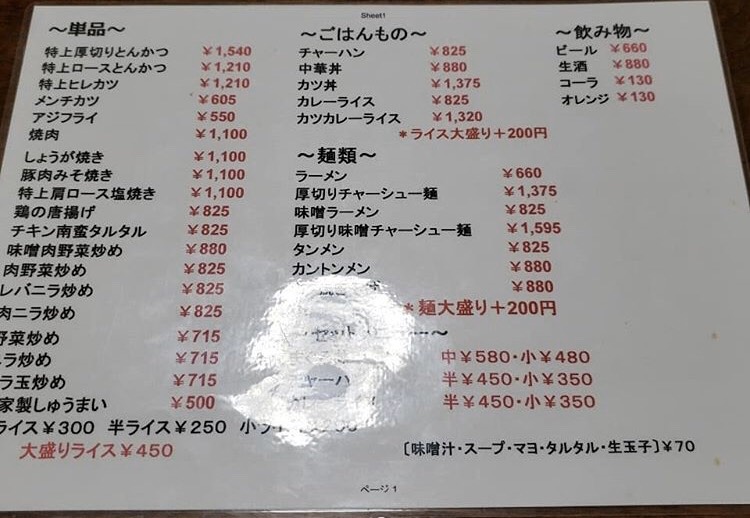 Sheet1
～単品～
特上厚切りとんかつ ￥1,540
特上ロースとんかつ ￥1,210
特上ヒレカツ ￥1,210
メンチカツ ￥605
アジフライ ￥550
焼肉 ￥1,100
しょうが焼き ￥1,100
豚肉みそ焼き ￥1,100
特上肩ロース塩焼き ￥1,100
鶏の唐揚げ ￥825
チキン南蛮タルタル ￥825
味噌肉野菜炒め ￥880
肉野菜炒め ￥825
レバニラ炒め ￥825
肉ニラ炒め ￥825
野菜炒め ￥715
ラ炒め ￥715
ラ玉炒め ￥715
家製しゅうまい ￥500
ライス￥300 半ライス￥250 小
大盛りライス￥450
～ごはんもの～
チャーハン ￥825
中華丼 ￥880
カツ丼 ￥1,375
カレーライス ￥825
カツカレーライス ￥1,320
＊ライス大盛り＋200円
～麺類～
ラーメン ￥660
厚切りチャーシュー麺 ￥1,375
味噌ラーメン ￥825
厚切り味噌チャーシュー麺 ￥1,595
タンメン ￥825
カントンメン ￥880
￥880
＊麺大盛り＋200円
～
中￥580・小￥480
ャーハ 半￥450・小￥350
半￥450・小￥350
〔味噌汁・スープ・マヨ・タルタル・生玉子〕￥70
～飲み物～
ビール ￥660
生酒 ￥880
コーラ ￥130
オレンジ ￥130
ページ 1